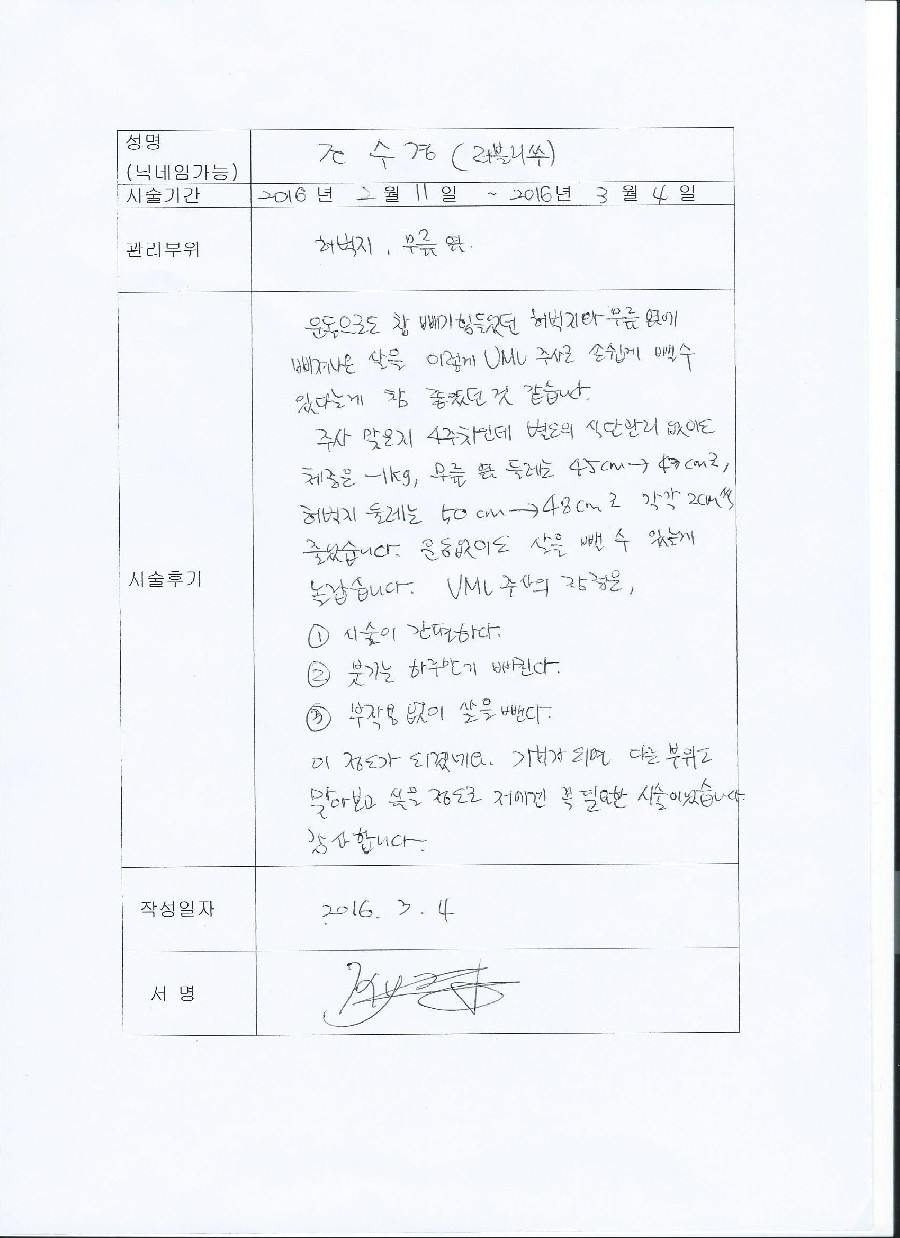 성명 전수경 (러블리쑤)
(닉네임가능)
시술기간 2016년 2월 11일 ~ 2016년 3월 4일
관리부위 허벅지, 무릎 옆.
운동으로도 참 빼기힘들었던 허벅지와 무릎 옆에
삐져나온 살을 이렇게 UML 주사로 손쉽게 뺄수
있다는게 참 좋았던 것 같습니다.
주사 맞은지 4주차인데 별도의 식단관리 없이도
체중은 -1kg, 무릎 옆 둘레는 45cm→43cm로,
허벅지 둘레는 50cm→48cm로 각각 2cm씩
줄었습니다. 운동없이도 살을 뺄 수 있는게
시술후기
놀랍습니다. UML 주사의 장점은,
① 시술이 간편하다.
② 붓기는 하루만기 빠진다.
③ 부작용 없이 살을 뺀다.
이 정도가 되겠네요. 기회가 되면 다른 부위도
맞아보고 싶을 정도로 저에겐 꼭 필요한 시술이었습니다.
감사합니다.
작성일자 2016. 3. 4
서 명